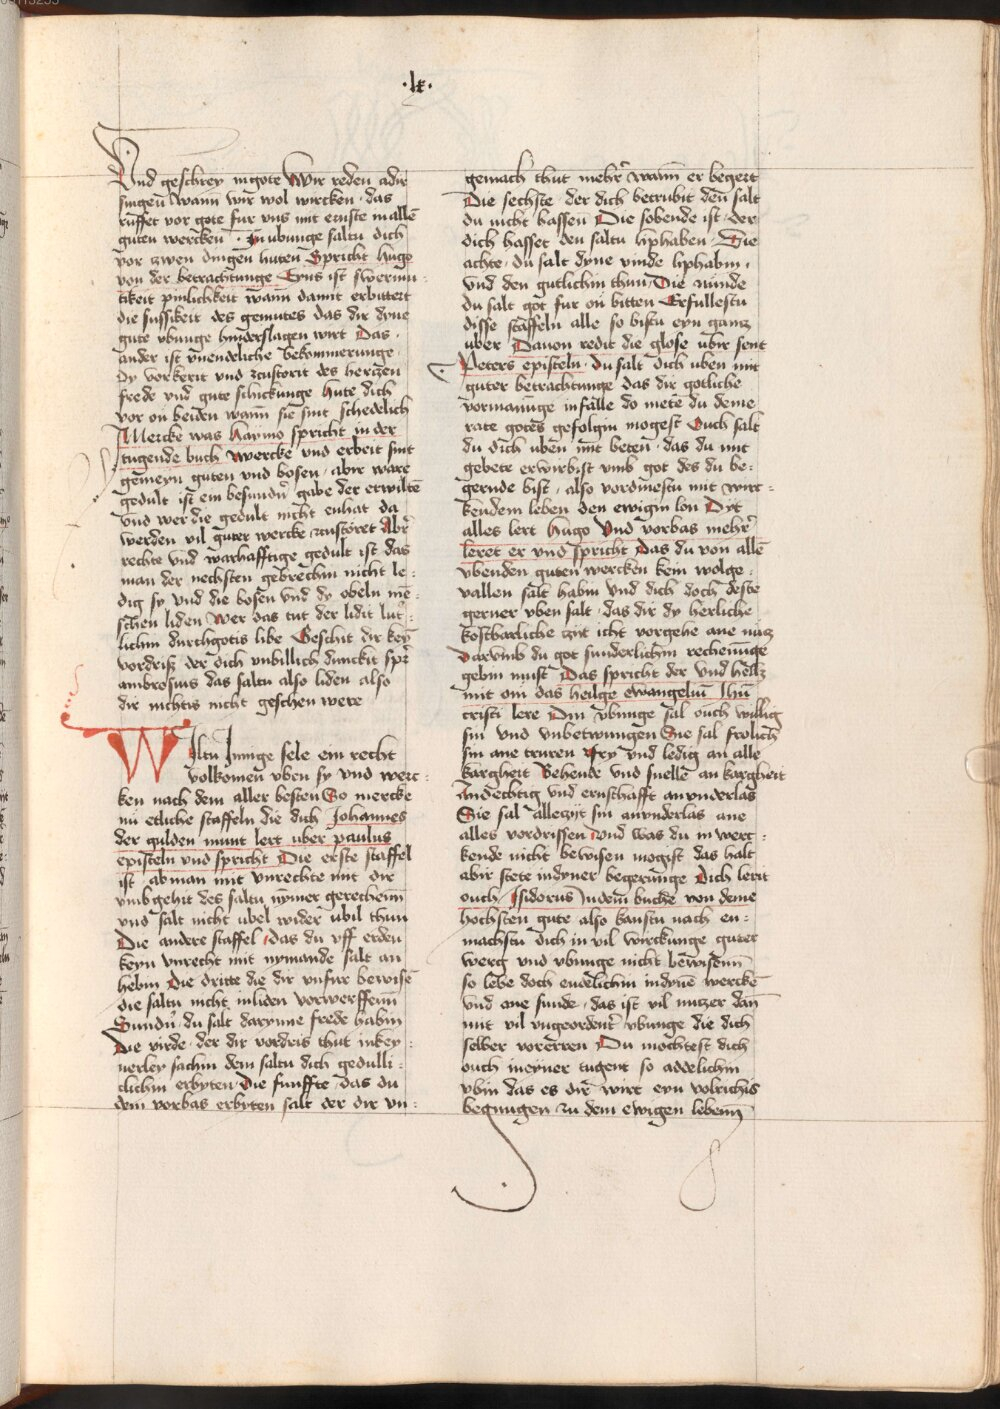 ·lx·
Und geschrey in gote Wir reden adir
singen Wann wir wol wircken · das
ruffet vor gote fur vns mit ernste in allē
guten wercken · In vbunge saltu dich
vor zwen dingen huten Spricht hugo
von der betrachtunge Eyns ist swermu
tikeit pinlichkeit wann damit erbittert
die sussikeit des gemutes das dir dyne
gute vbunge hinderslagen wirt Das ·
ander ist vnendeliche bekommerunge
Dy vorkerit vnd zustorit des hertzen
frede vnd gute schickunge hute dich
vor on beiden wann sie sint schedelich
Mercke was haymo spricht in der
tugende buch Wercke vnd erbeit sint
gemeyn guten vnd bosen / abir ware
gedult ist ein besundir gabe der erwiltē
vnd wer die gedult nicht enhat da
werden vil guter wercke zustoret Abir
rechte vnd warhafftige gedult ist das
man der nechsten gebrechin nicht le :
dig sy vnd die bosen vnd dy obeln mē :
schen liden Wer das tut der lidit lut :
lichin durch gotis libe Geschit dir key
vordriß der dich vnbillich dunckit spr
ambrosius das saltu also liden also
dir nichtis nicht geschen were
Wiltu Innige sele ein recht
volkomen vben sy vnd werc :
ken nach dem aller besten So mercke
nu etliche staffeln die dich Johannes
der gulden munt lert uber paulus
episteln vnd spricht Die erste staffel
ist · ab man mit vnrechte mit dir
vmb gehit des saltu nymer gerechenn
vnd salt nicht ubel wider ubil thun
Die andere staffel / das du vff erden
keyn vnrecht mit nymande salt an
hebin Die dritte die dir vnfur bewisē
die saltu nicht in liden vorwerffenn
Sundir · du salt darynne frede habin
Die virde · der dir vordris thut in key :
nerley sachin dem saltu dich gedulli :
clichin erbyten Die funffte · das du
dem vorbas erbyten salt der dir vn :
gemach thut mehir wann er begert
Die sechste · der dich betrubit den salt
du nicht hassen Die sobende ist · der
dich hasset den saltu liphaben / Die
achte / du salt dyne vinde liphabin ·
vnd den gutlichin thun / Die nunde
du salt got fur on bitten Erfullestu
disse staffeln alle so bistu eyn gantz
uber Dauon redit die glose ubir sent
Peters episteln · du salt dich uben mit
guter betrachtunge das dir gotliche
vormanunge in falle do mete du deme
rate gotes gefolgin mogest Ouch salt
du dich uben mit beten · das du mit
gebete erwirbist vmb got des du be :
gernde bist / also vordinestu mit wirc :
kendem leben den ewigin lon Dyt
alles lert hugo Vnd vorbas mehir
leret er vnd spricht Das du von allē
vbenden guten wercken kein wolge :
vallen salt habin vnd dich doch deste
gerner vben salt · das dir dy herliche
kostbarliche zyt icht vorgehe ane nutz
Darvmb du got sunderlichin rechenunge
gebin must Das spricht der vnd heltz
mit om das heilge ewangelium Jhū
cristi lere Din vbunge sal ouch willig
sin vnd vnbetwungen Sie sal frolich
sin ane truren Fry vnd ledig an alle
kargheit Behende vnd snelle an kargheit
Andechtig vnd ernsthafft an vnderlas
Sie sal alletzyt sin an vnderlas ane
alles vordrissen Vnd was du in werc :
kende nicht bewisen mogist das halt
abir stete in dyner begerunge Dich lerit
ouch / Isidorus In dem buche von deme
hochsten gute also kanstu nach en :
machstu dich in vil wirckunge guter
werg vnd vbunge nicht bewisenn
so lebe doch endelichin in dynē werckē
vnd ane sunde · das ist vil nutzer dan
mit vil vngeordentir vbunge die dich
selber vorerren Du mochtest dich
ouch in eyner tugent so addelichin
vbin das es dir wirt eyn volrichis
begnugen zu dem ewigen lebenn